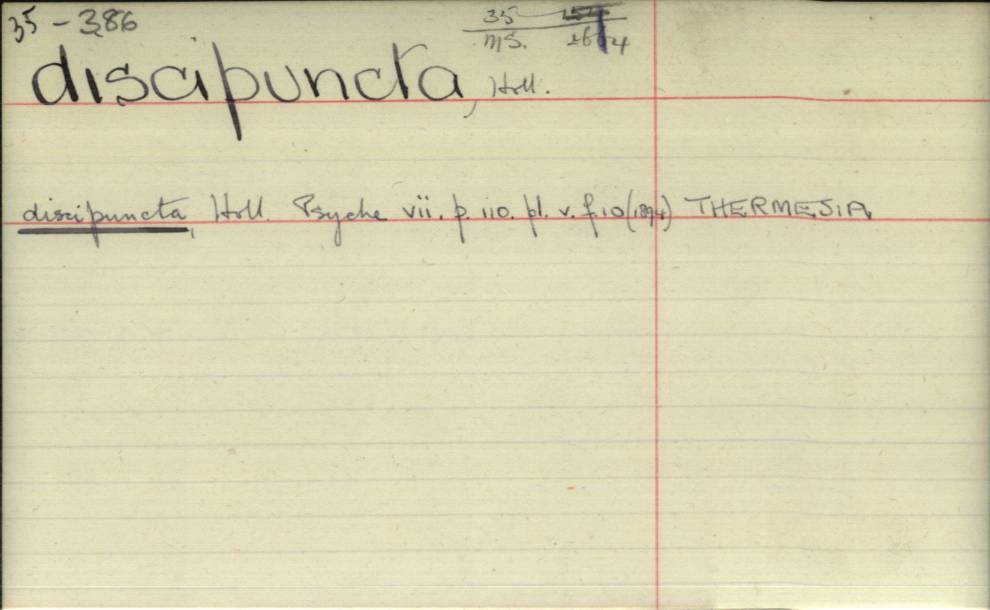 35 - 386
35
MS.
discipuncta, Holl.
discipuncta, Holl. Psyche vii. p. 110. pl. v. f. 10 (1894) THERMESIA